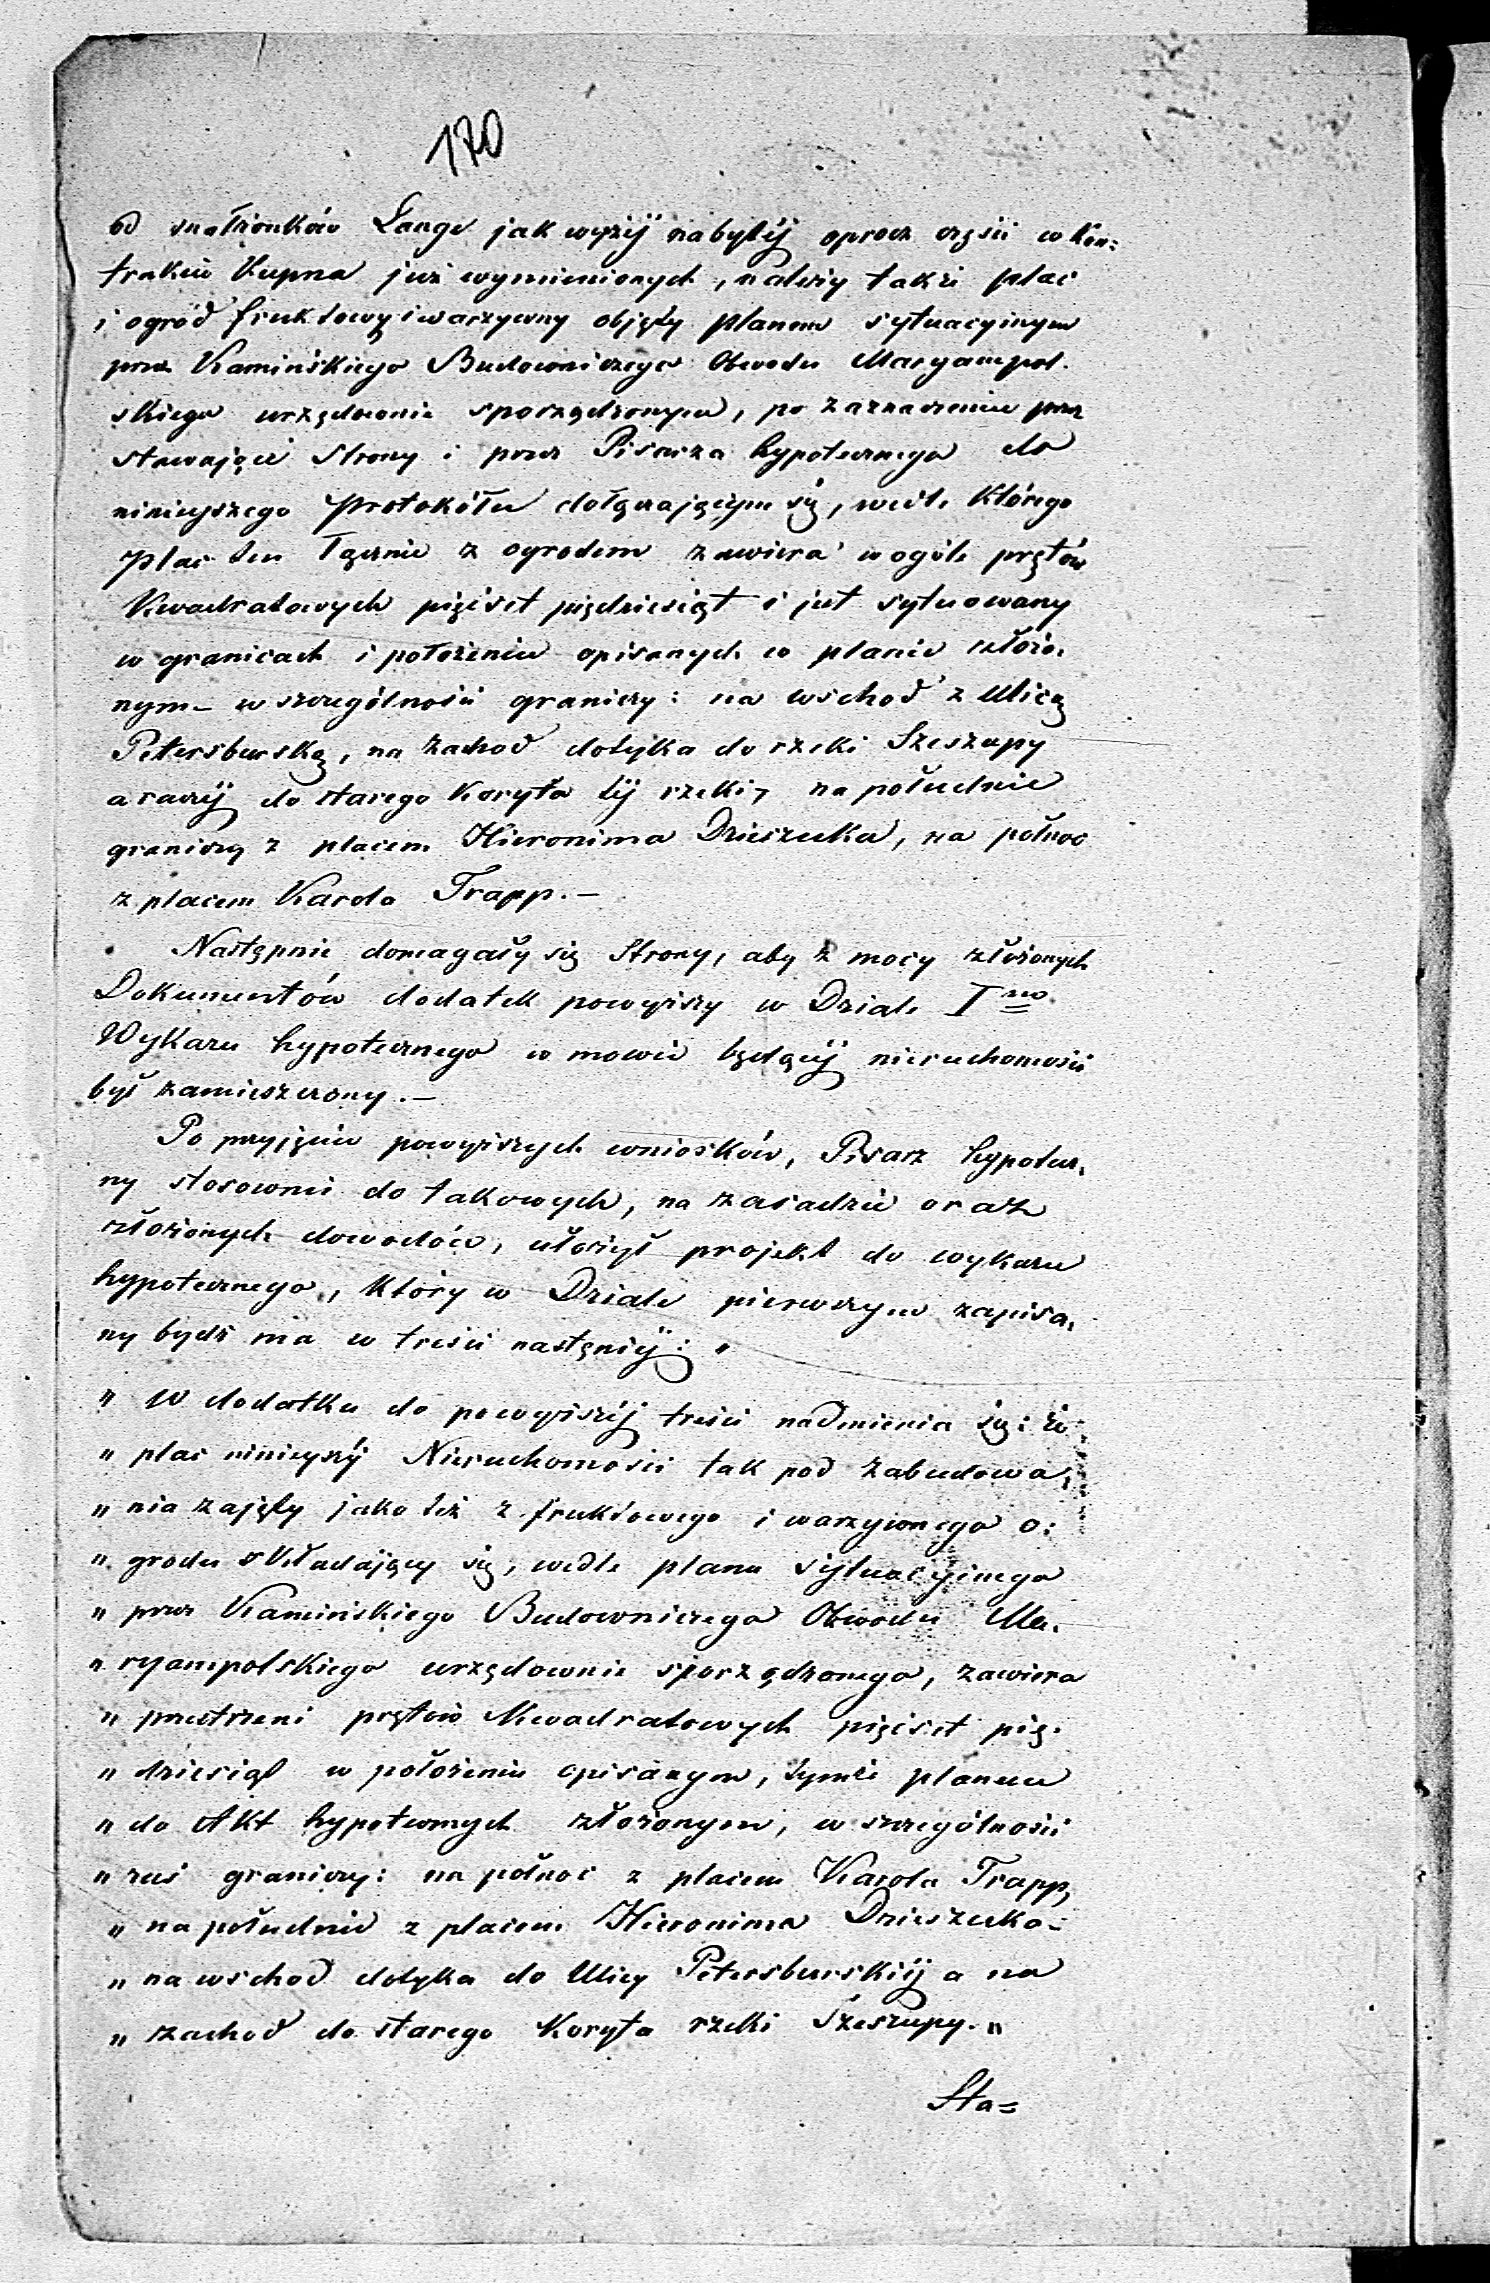 170
od małżonków Lange jak wyżéj nabytéj oprócz części w kon:
trakcie Kupna już wymienionych, należy także plac
i ogród fruktowy i warzywny objęty planem sytuacyinym
przez Kamińskiego Budowniczego Obwodu Maryampol.
skiego urzędownie sporządzonym, po zaznaczeniu przez
stawające Strony i przez Pisarza hypotecznego do
ninieyszego Protokółu dołączającym się, wedle którego
Plac ten łącznie z ogrodem zawiera w ogóle prętów
Kwadratowych pięćset pięćdziesiąt i jest sytuowany
w granicach i położeniu opisanych w planie złożo.
nym – w szczególności graniczy: na wschod z Ulicą
Petersburską, na zachod dotyka do rzeki Szeszupy
a raczéj do starego Koryta téj rzeki, na południe
graniczy z placem Hieronima Drieszuka, na połnoc
z placem Karola Trapp. –
Następnie domagały się Strony, aby z mocy złożonych
Dokumentów dodatek powyższy w Dziale I mo.
Wykazu hypotecznego w mowie będącéj nieruchomości
był zamieszczony. –
Po przyjęciu powyższych wniosków, Pisarz hypotecz.
ny stosownie do takowych, na zasadzie oraz
złożonych dowodów, ułożył projekt do wykazu
hypotecznego, który w Dziale pierwszym zapisa.
ny bydź ma w treści następnéj: "
" W dodatku do powyższéj treści nadmienia się: że
" plac ninieyszéj Nieruchomości tak pod zabudowa,
" nia zajęty jako też z fruktowego i warzywnego o:
" grodu składający się, wedle planu sytuacyinego
" przez Kamińskiego Budowniczego Obwodu Ma.
" ryampolskiego urzędownie sporządzonego, zawiera
" przestrzeni prętów Kwadratowych pięćset pięć.
" dziesiąt w położeniu opisanym, tymże planem
" do Akt hypotecznych złożonym, w szczególności
" zaś graniczy: na połnoc z placem Karola Trapp,
" na południe z placem Hieronima Drieszuka –
" na wschod dotyka do Ulicy Petersburskiéj a na
" zachod do starego Koryta rzeki Szeszupy. "
Sta=